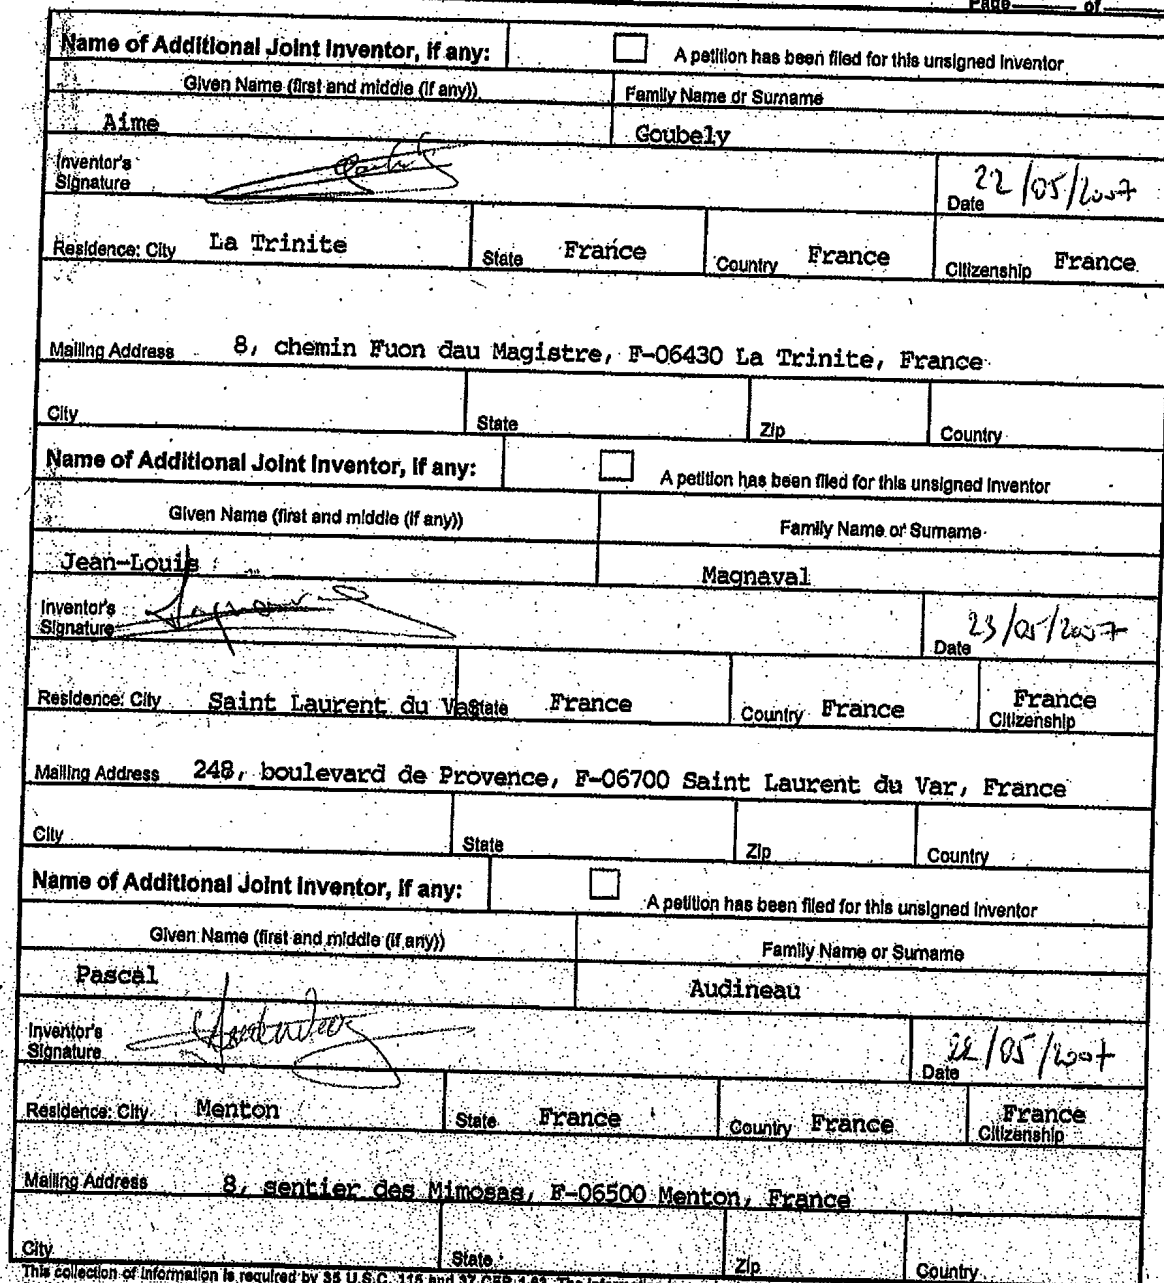 Page of
Name of Additional Joint Inventor, if any: A petition has been filed for this unsigned inventor
Given Name (first and middle (if any)) Family Name or Surname
Aime Goubely
Inventor's Signature Date 22/05/2007
Residence: City La Trinite State France Country France Citizenship France
Mailing Address 8, chemin Fuon dau Magistre, F-06430 La Trinite, France
City State Zip Country
Name of Additional Joint Inventor, if any: A petition has been filed for this unsigned inventor
Given Name (first and middle (if any)) Family Name or Surname
Jean-Louis Magnaval
Inventor's Signature Date 23/05/2007
Residence: City Saint Laurent du Var State France Country France Citizenship France
Mailing Address 248, boulevard de Provence, F-06700 Saint Laurent du Var, France
City State Zip Country
Name of Additional Joint Inventor, if any: A petition has been filed for this unsigned inventor
Given Name (first and middle (if any)) Family Name or Surname
Pascal Audineau
Inventor's Signature Date 22/05/2007
Residence: City Menton State France Country France Citizenship France
Mailing Address 8, sentier des Mimosas, F-06500 Menton, France
City State Zip Country
This collection of information is required by 35 U.S.C. 115 and 37 CFR 1.63. The